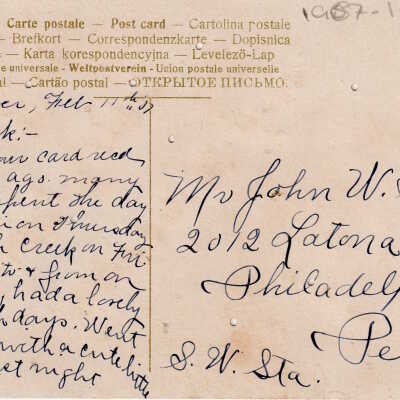 1987-1
Carte postale — Post card — Cartolina postale
— Brefkort — Correspondenzkarte — Dopisnica
— Karta korespondencyjna — Levelező-Lap
universale - Weltpostverein - Union postale universelle
— Cartão postal — ОТКРЫТОЕ ПИСЬМО.
Feb 11th 07
card recd
ago. many
spent the day
on Thursday
creek on Fri
to & from on
had a lovely
days. Went
with a cute little
night
Mr John W.
2012 Latona
Philadel
Pe
S. W. Sta.